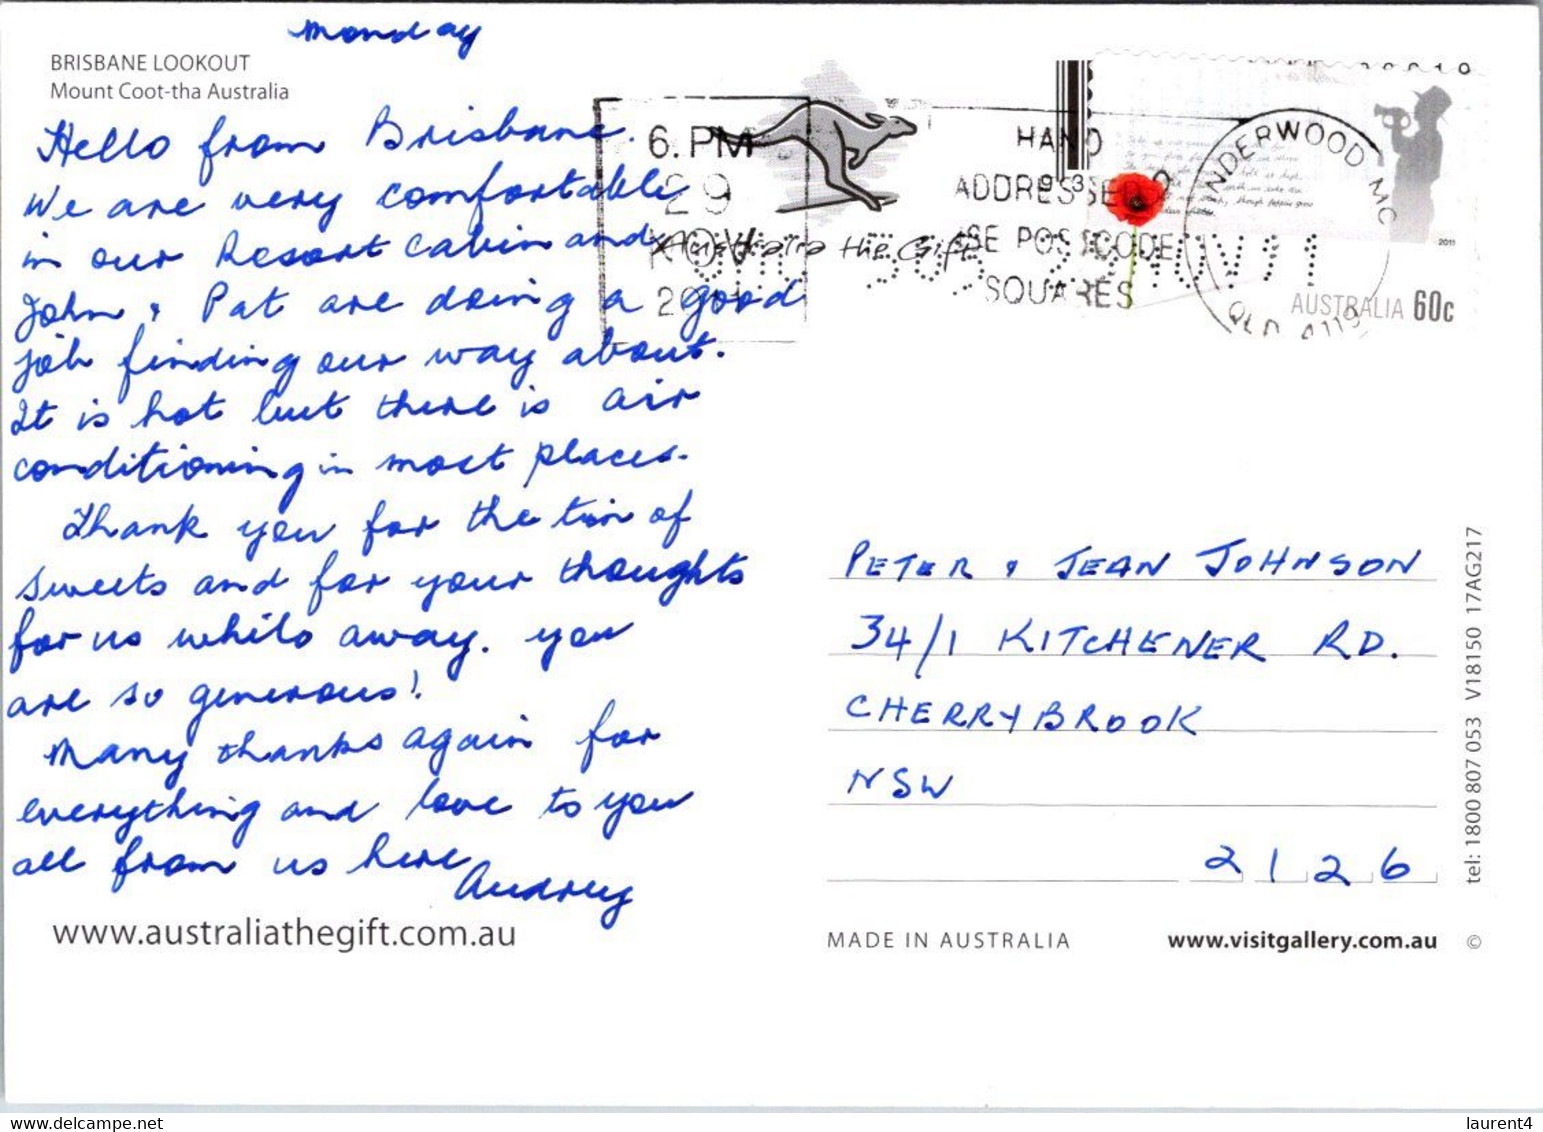 Monday
BRISBANE LOOKOUT
Mount Coot-tha Australia
Hello from Brisbane.
We are very comfortable
in our Resort cabin and
John & Pat are doing a good
job finding our way about.
It is hot but there is air
conditioning in most places.
Thank you for the tin of
sweets and for your thoughts
for us while away. you
are so generous!
Many thanks again for
everything and love to you
all from us here
Audrey
www.australiathegift.com.au
6. PM
29
NOV
2011
Australia the Gift
HAND
ADDRESSED
USE POSTCODE
SQUARES
29NOV11
UNDERWOOD MC
QLD 4119
2011
AUSTRALIA 60c
PETER & JEAN JOHNSON
34/1 KITCHENER RD.
CHERRYBROOK
NSW
2126
MADE IN AUSTRALIA
www.visitgallery.com.au ©
tel: 1800 807 053 V18150 17AG217
www.delcampe.net
laurent4